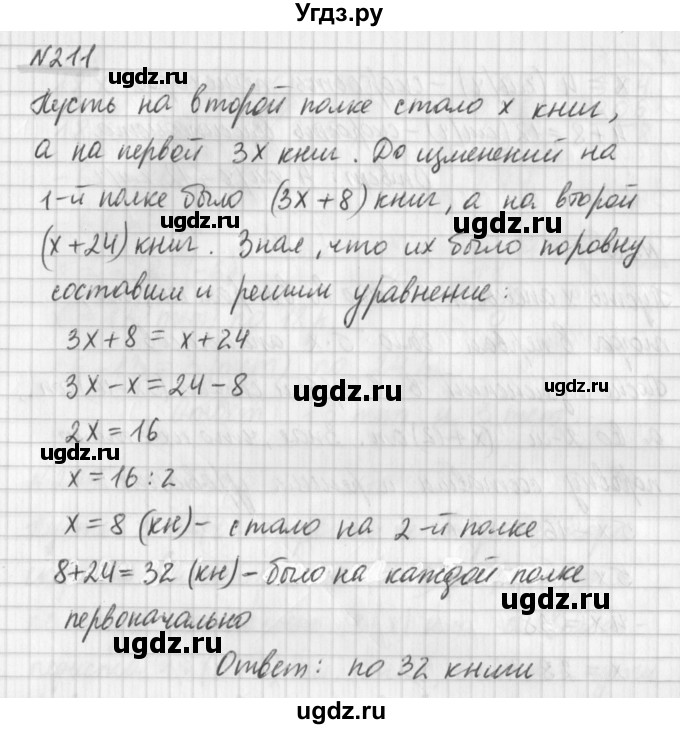 Угдз.ру
№211
ugdz.ru
Пусть на второй полке стало x книг,
а на первой 3x книг. До изменений на
ugdz.ru
1-й полке было (3x+8) книг, а на второй
ugdz.ru
(x+24) книг. Зная, что их было поровну
составим и решим уравнение:
3x+8=x+24
ugdz.ru
3x-x=24-8
ugdz.ru
ugdz.ru
2x=16
ugdz.ru
x=16:2
ugdz.ru
x=8 (кн)- стало на 2-й полке
8+24=32 (кн)-было на каждой полке
ugdz.ru
первоначально
ugdz.ru
Ответ: по 32 книги
ugdz.ru
ugdz.ru